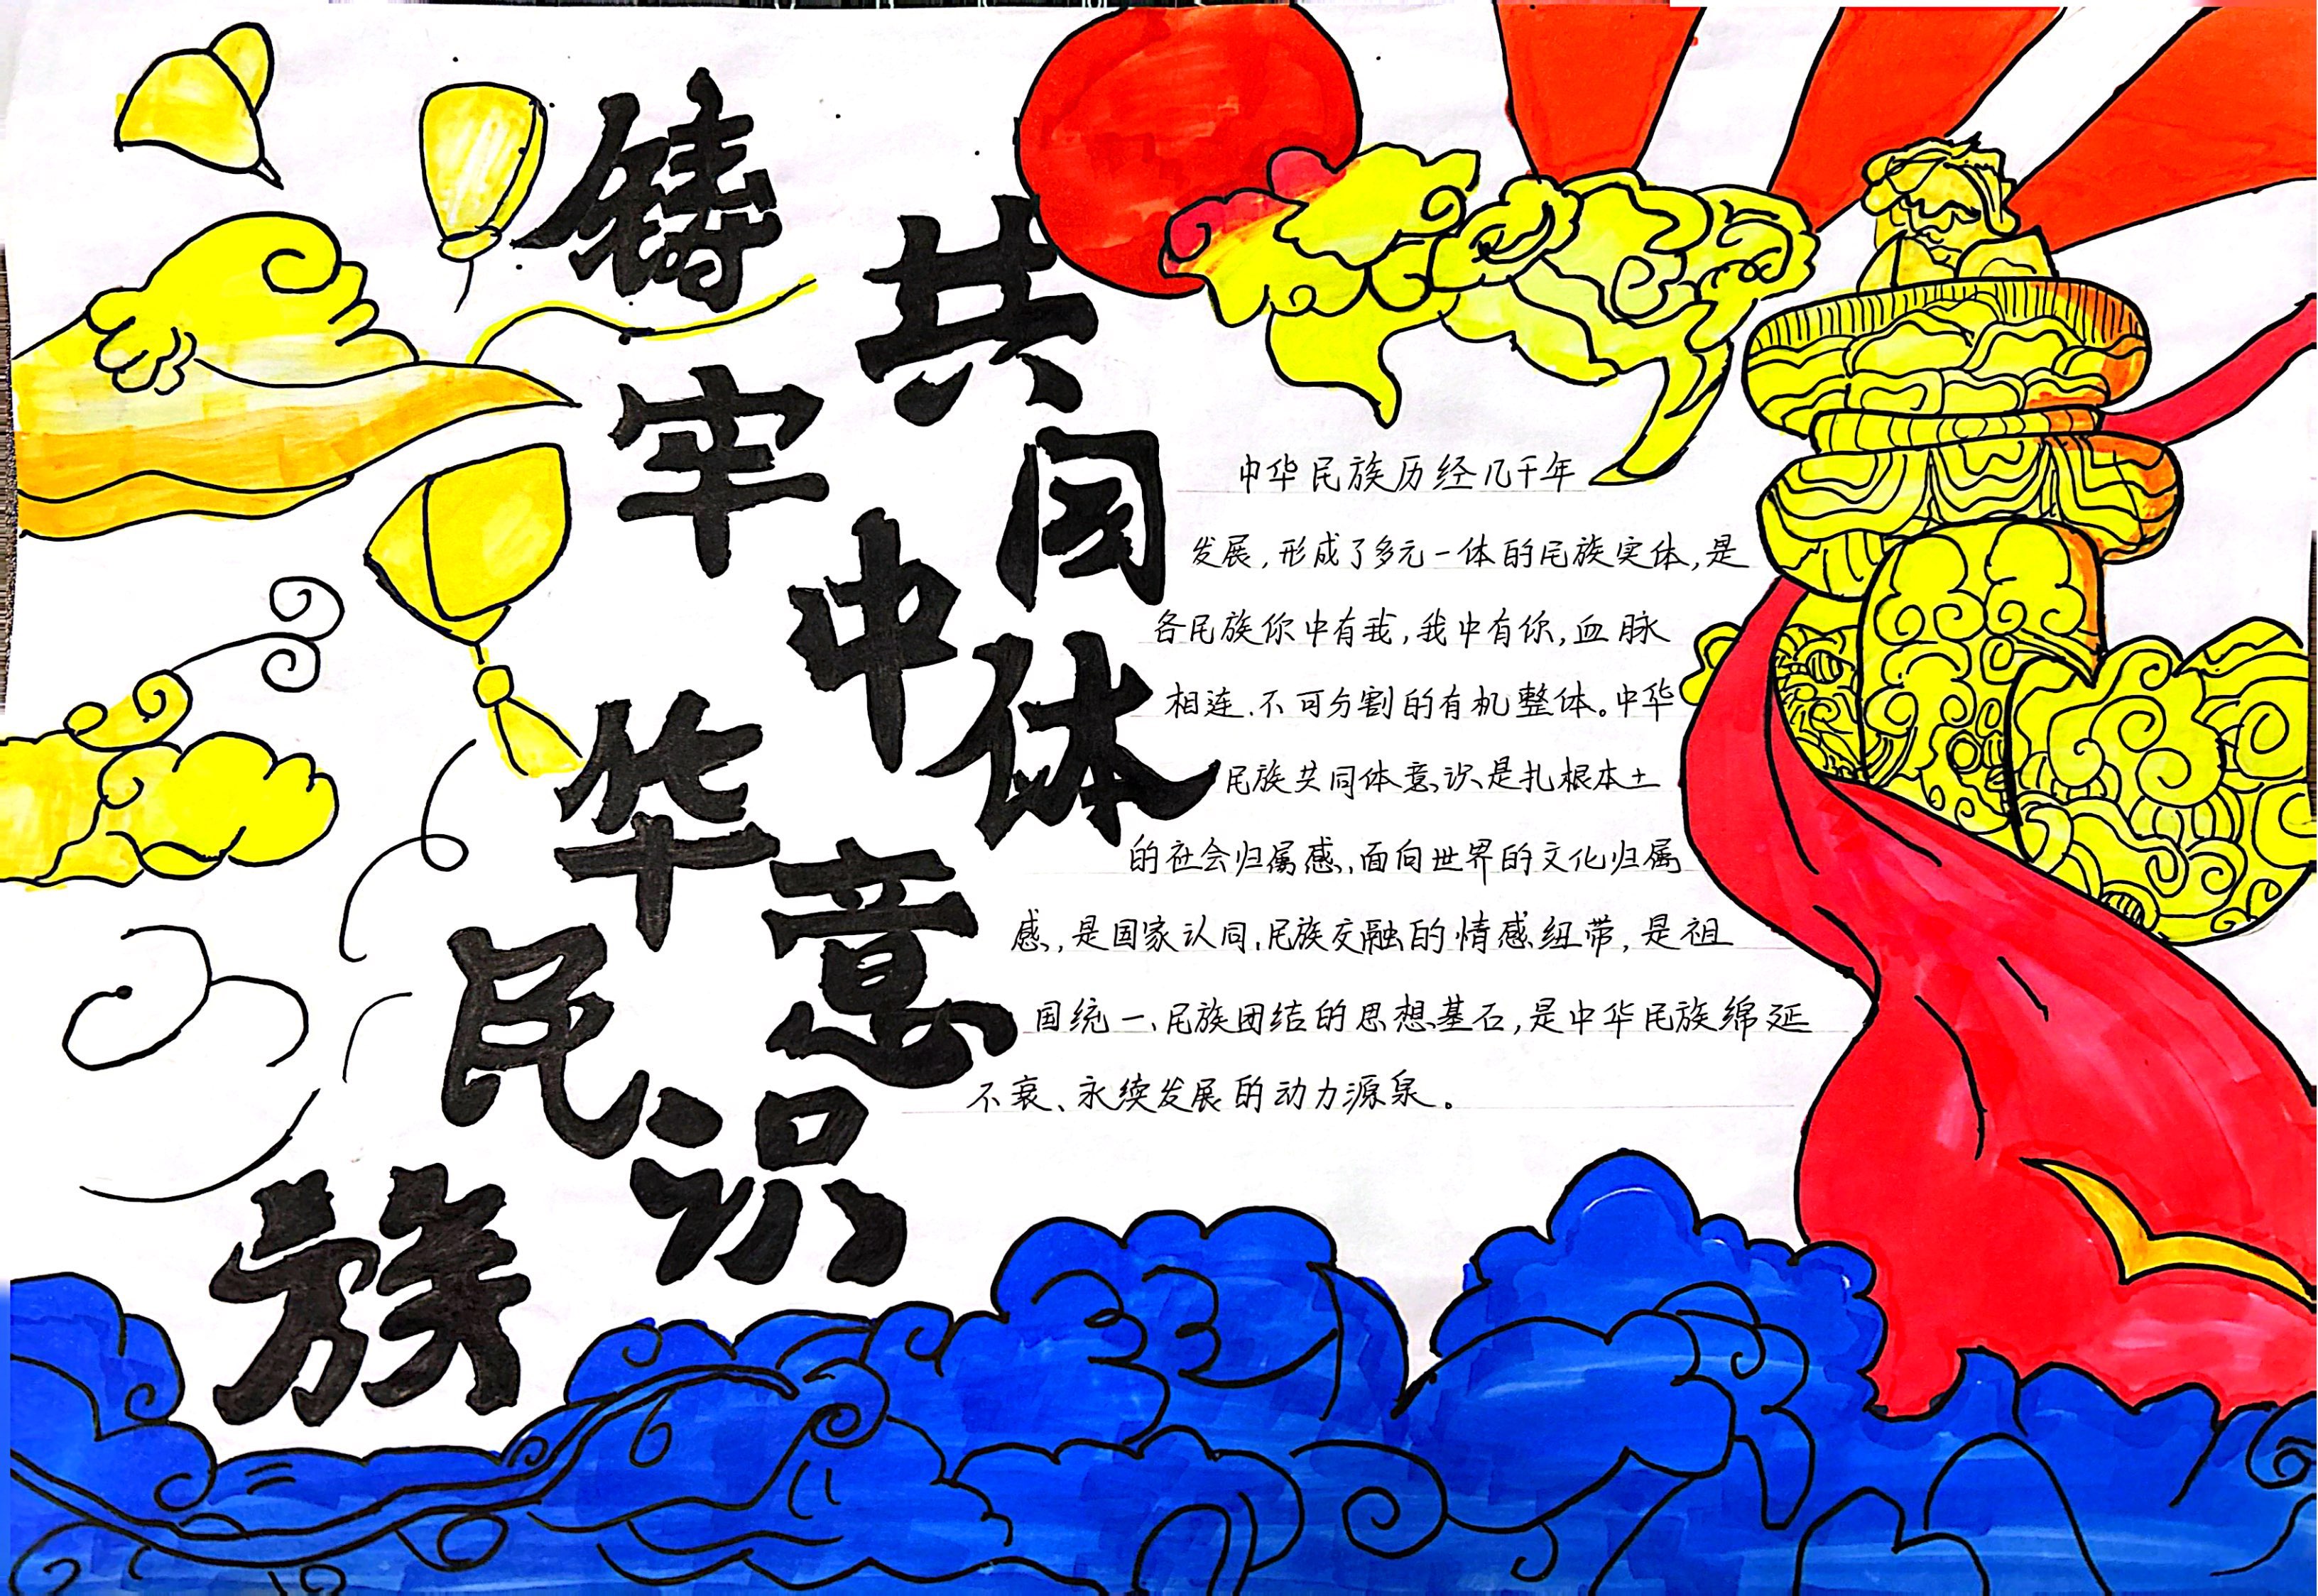 铸牢
中华民族
共同体意识
中华民族历经几千年
发展,形成了多元一体的民族实体,是
各民族你中有我,我中有你,血脉
相连、不可分割的有机整体。中华
民族共同体意识是扎根本土
的社会归属感、面向世界的文化归属
感,是国家认同、民族交融的情感纽带,是祖
国统一、民族团结的思想基石,是中华民族绵延
不衰、永续发展的动力源泉。